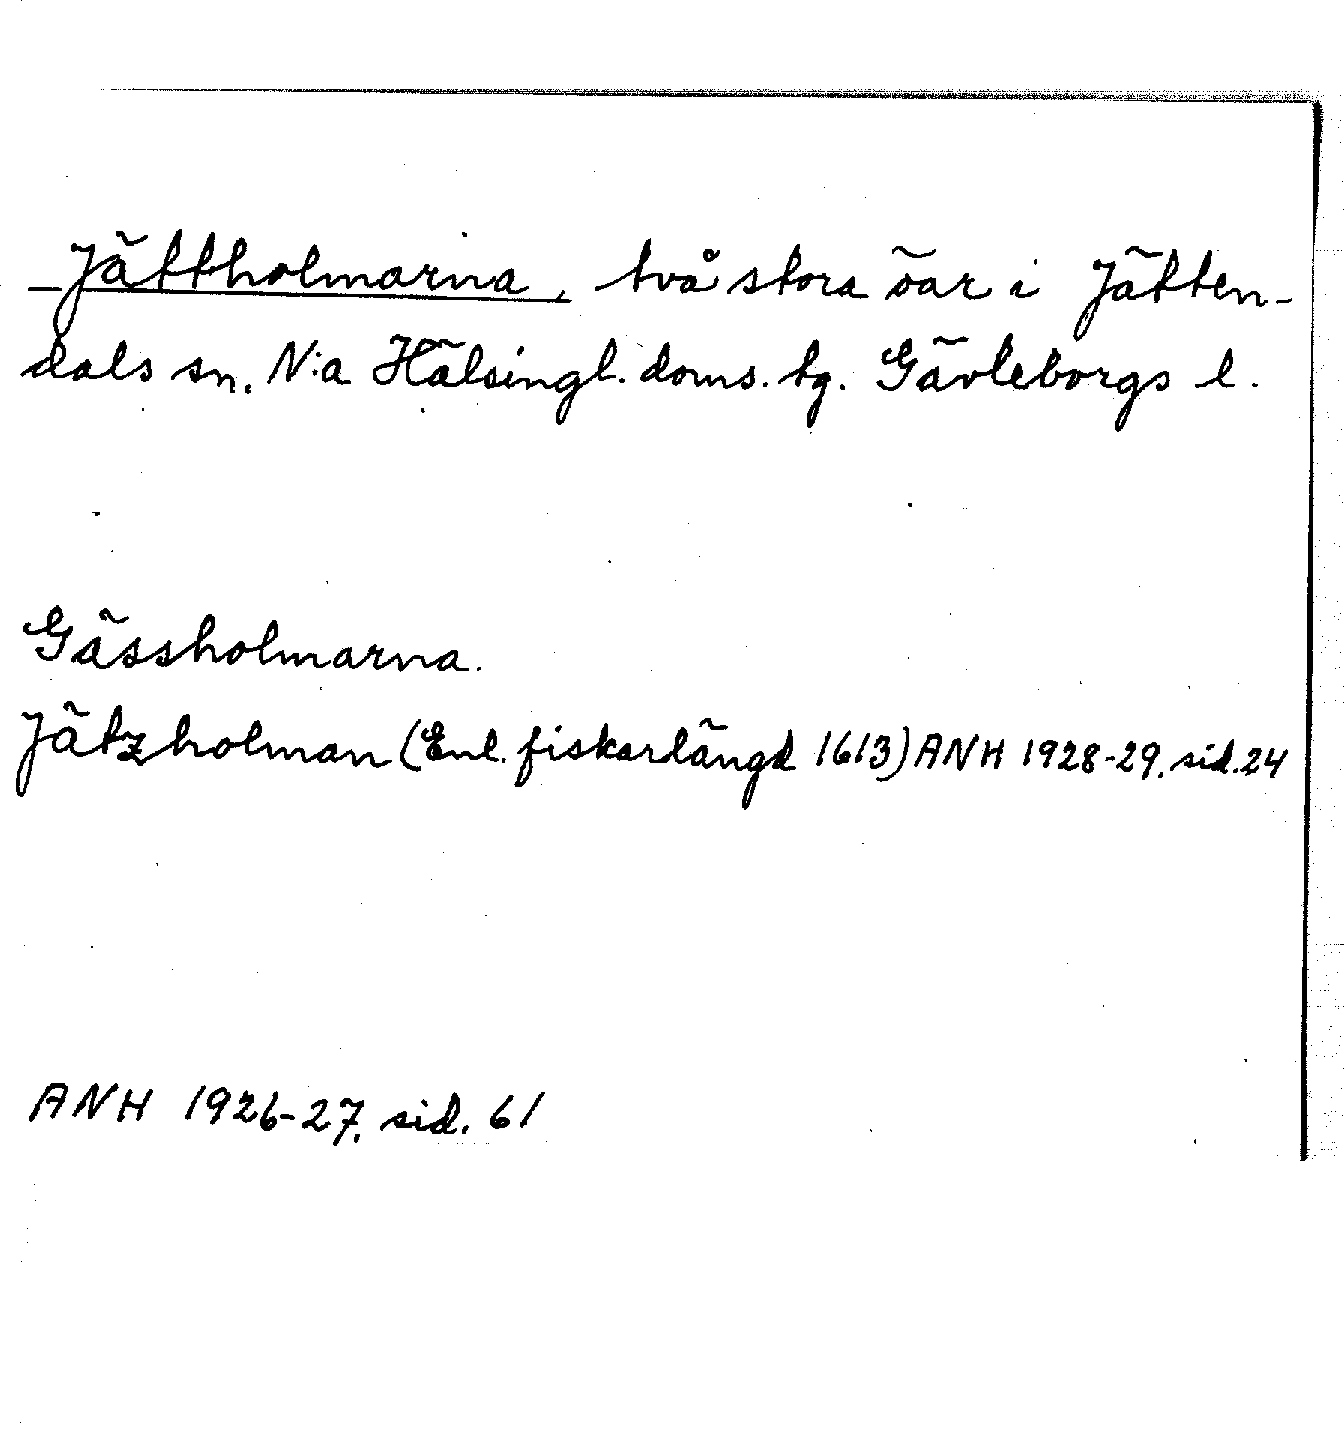 Jättholmarna, två stora öar i Jätten-
dals sn. N:a Hälsingl. doms. tg. Gävleborgs l.
Gässholmarna.
Jätzholman (Enl. fiskarlängd 1613) ANH 1928-29, sid. 24
ANH 1926-27, sid. 61